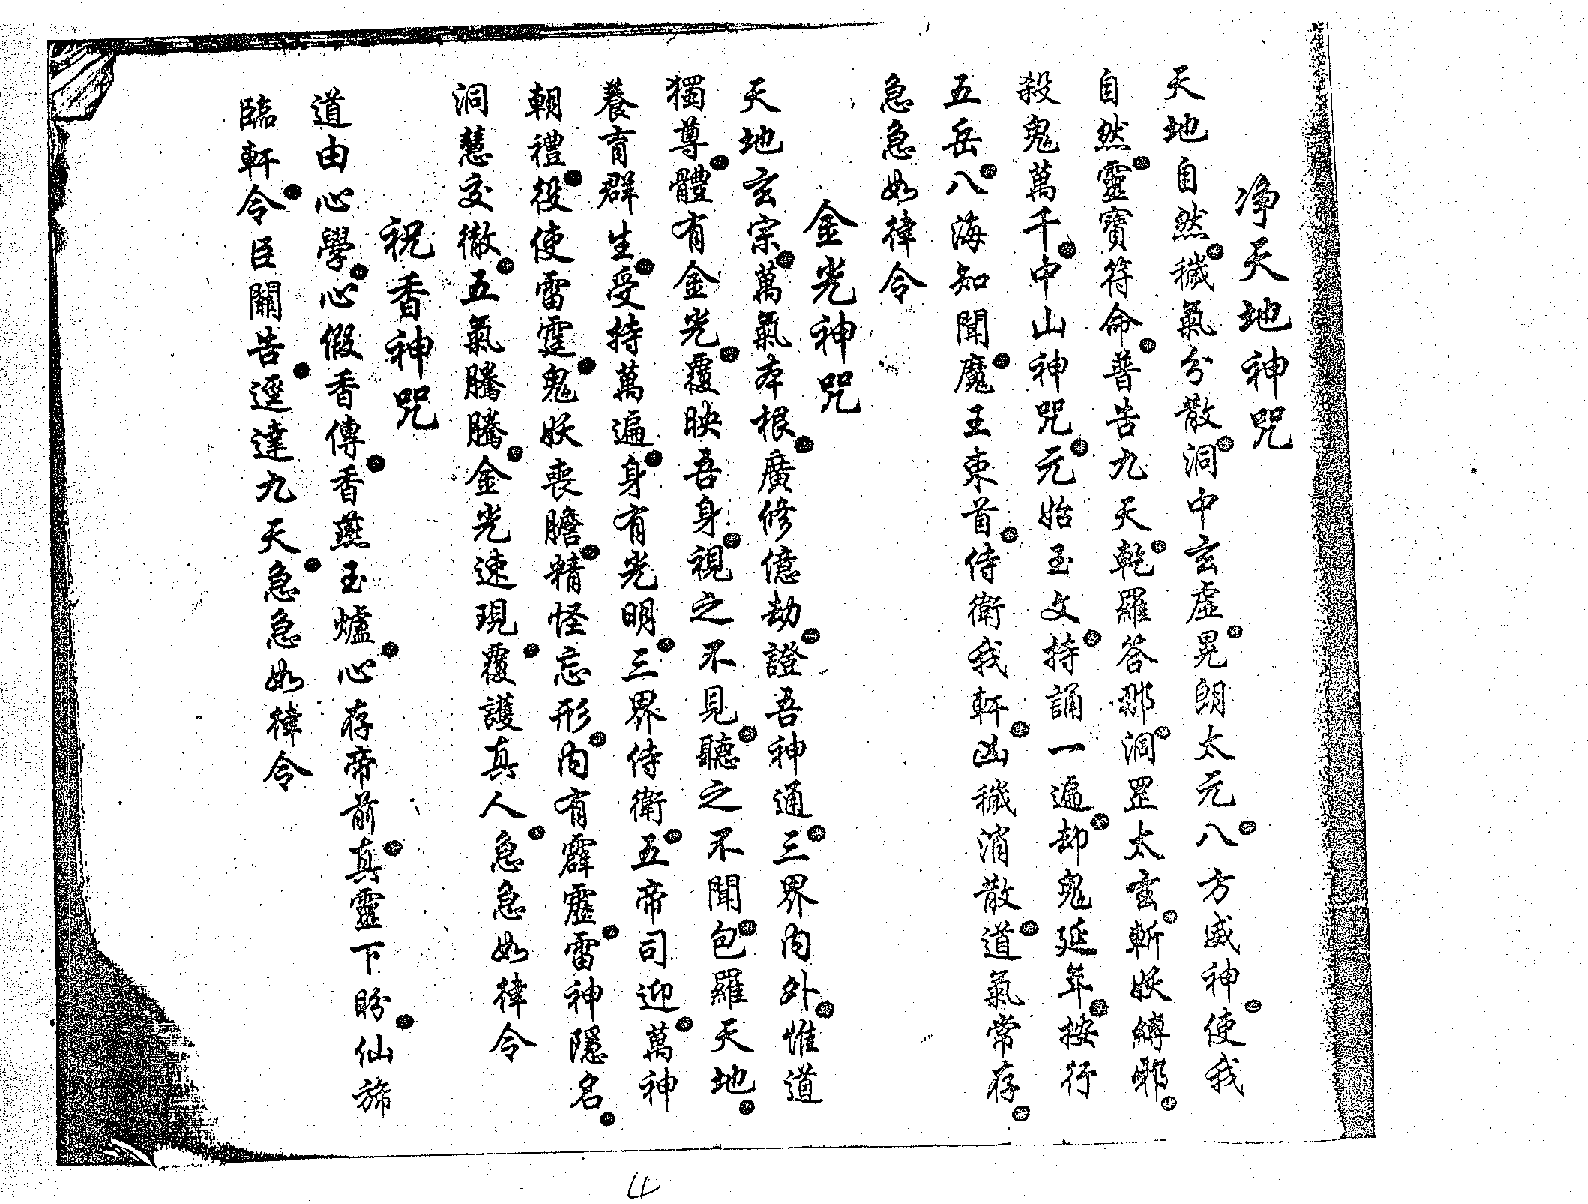 净天地神咒
天地自然穢氣分散洞中玄虛晃朗太元八方威神使我
自然靈寶符命普告九天乾羅答那洞罡太玄斬妖縛邪
殺鬼萬千中山神咒元始玉文持誦一遍却鬼延年按行
五岳八海知聞魔王束首侍衛我軒凶穢消散道氣常存
急急如律令
金光神咒
天地玄宗萬氣本根廣修億劫證吾神通三界內外惟道
獨尊體有金光覆映吾身視之不見聽之不聞包羅天地
養育群生受持萬遍身有光明三界侍衛五帝司迎萬神
朝禮役使雷霆鬼妖喪膽精怪忘形內有霹靂雷神隱名
洞慧交徹五氣騰騰金光速現覆護真人急急如律令
祝香神咒
道由心學心假香傳香爇玉爐心存帝前真靈下盼仙旆
臨軒令臣關告逕達九天急急如律令
4